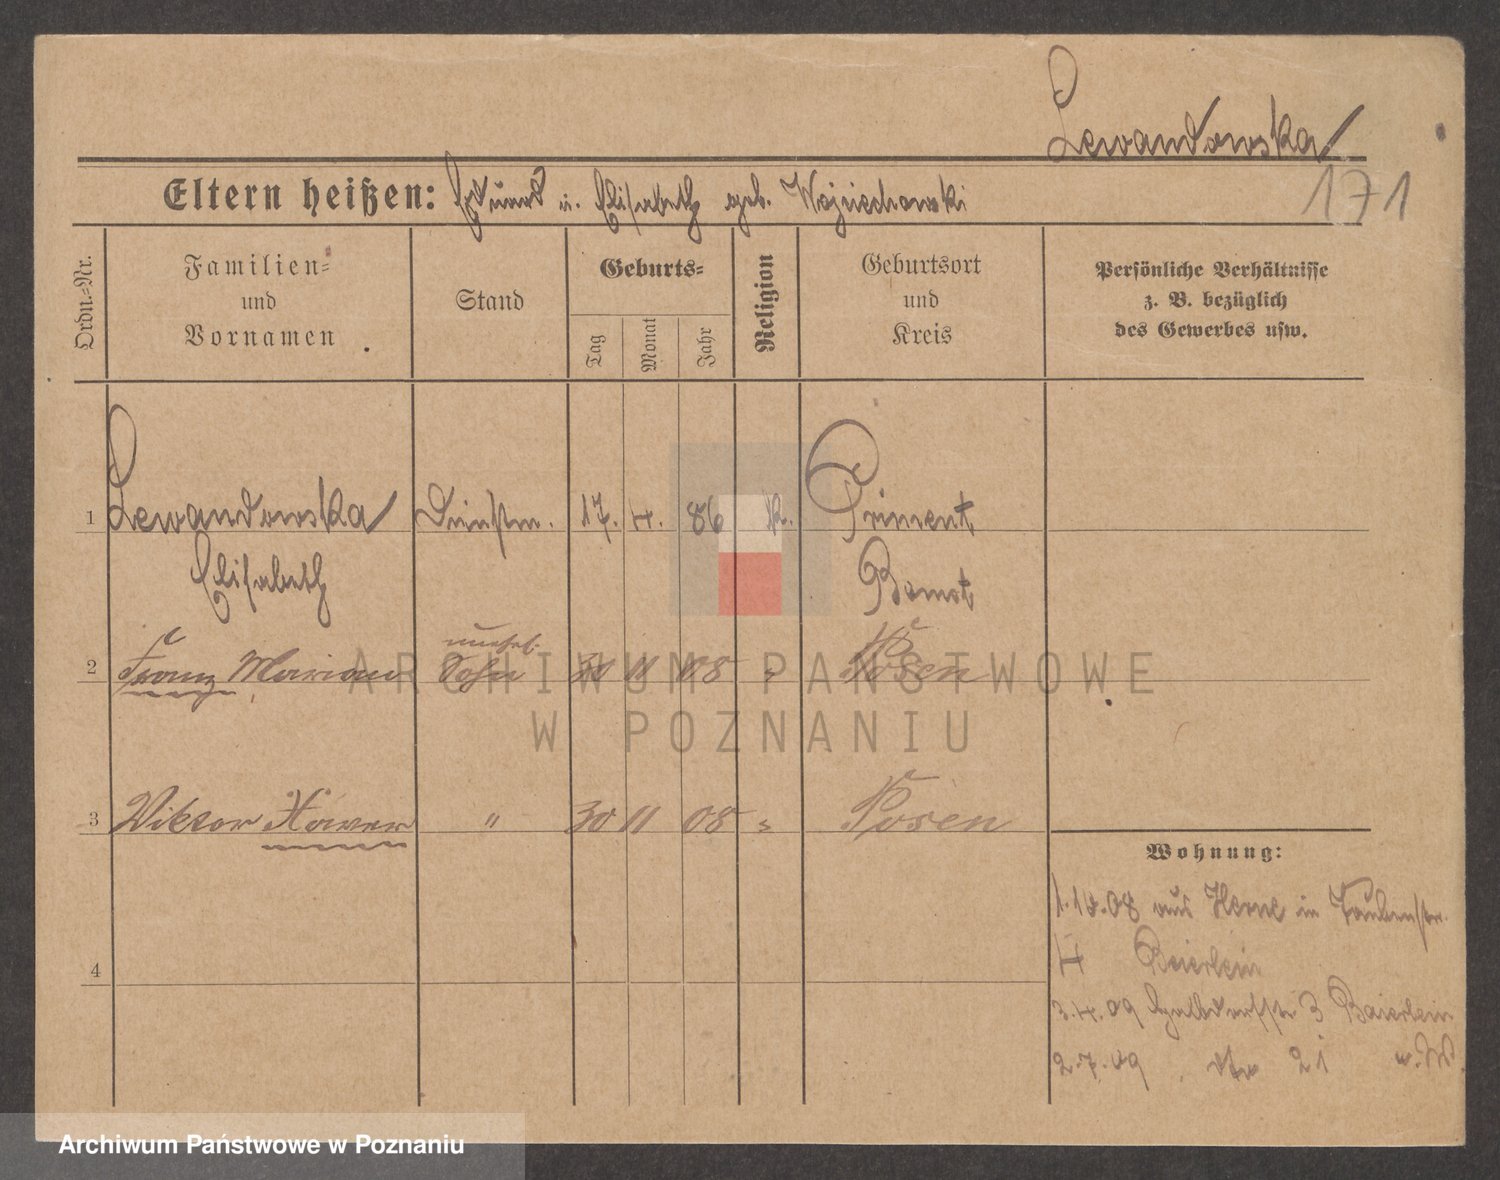 Lewandowska
171
Eltern heißen: Eduard u. Elisabeth geb. Wojciechowski
Ordn.-Nr.
Familien-
und
Vornamen
Stand
Geburts-
Tag
Monat
Jahr
Religion
Geburtsort
und
Kreis
Persönliche Verhältnisse
z. B. bezüglich
des Gewerbes usw.
1 Lewandowska Dienstm. 17. 4. 86 K. Priment
Elisabeth Bomst
unehel.
2 Franz Marian Sohn 30 11 08 " Posen
3 Viktor Xaver " 30 11 08 " Posen
4
Wohnung:
1.10.08 aus Herne in Taubenstr.
4 Beierlein
3.4.09 3 Baierlein
2.7.09 dto 21 v.W.
ARCHIWUM PAŃSTWOWE
W POZNANIU
Archiwum Państwowe w Poznaniu